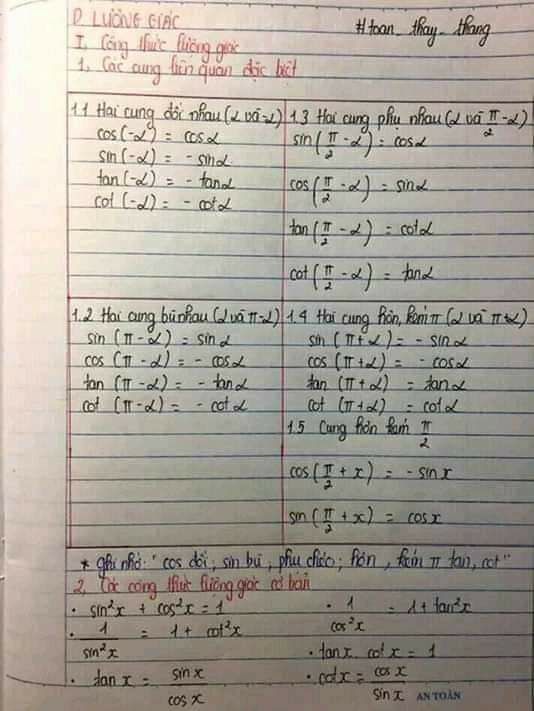 D. LƯỢNG GIÁC
#toan_thay_thang
I, Công thức lượng giác
1, Các cung liên quan đặc biệt
1.1 Hai cung đối nhau (α và -α)
cos(-α) = cosα
sin(-α) = - sinα
tan(-α) = - tanα
cot(-α) = - cotα
1.3 Hai cung phụ nhau (α và π/2 - α)
sin(π/2 - α) = cosα
cos(π/2 - α) = sinα
tan(π/2 - α) = cotα
cot(π/2 - α) = tanα
1.2 Hai cung bù nhau (α và π-α)
sin (π - α) = sinα
cos (π - α) = - cosα
tan (π - α) = - tanα
cot (π - α) = - cotα
1.4 Hai cung hơn, kém π (α và π+α)
sin (π + α) = - sinα
cos (π + α) = - cosα
tan (π + α) = tanα
cot (π + α) = cotα
1.5 Cung hơn kém π/2
cos(π/2 + x) = - sinx
sin(π/2 + x) = cosx
* ghi nhớ: " cos đối ; sin bù , phụ chéo ; hơn , kém π tan, cot "
2, Các công thức lượng giác cơ bản
· sin²x + cos²x = 1
· 1/cos²x = 1 + tan²x
· 1/sin²x = 1 + cot²x
· tanx . cotx = 1
· tan x = sinx/cosx
· cotx = cosx/sinx
AN TOÀN